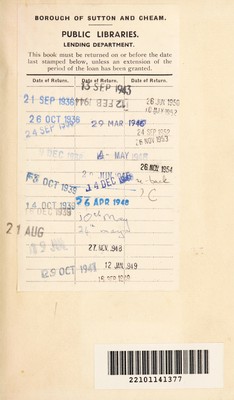 BOROUGH OF SUTTON AND CHEAM.
PUBLIC LIBRARIES.
LENDING DEPARTMENT.
This book must be returned on or before the date
last stamped below, unless an extension of the
period of the loan has been granted.
Date of Return. Date of Return. Date of Return.
13 SEP 1943
21 SEP 1938 12 FEB 1944 26 JUN 1950
26 OCT 1938 29 MAR 1946
24 SEP 24 SEP 1952
26 NOV 1953
DEC MAY
26 NOV 1954
OCT 1939 14 DEC
14 OCT 1939 6 APR 1948
DEC 1939 10th May
21 AUG 24th May
27 NOV 1948
OCT 1941 12 JAN 1949
15 SEP
22101141377